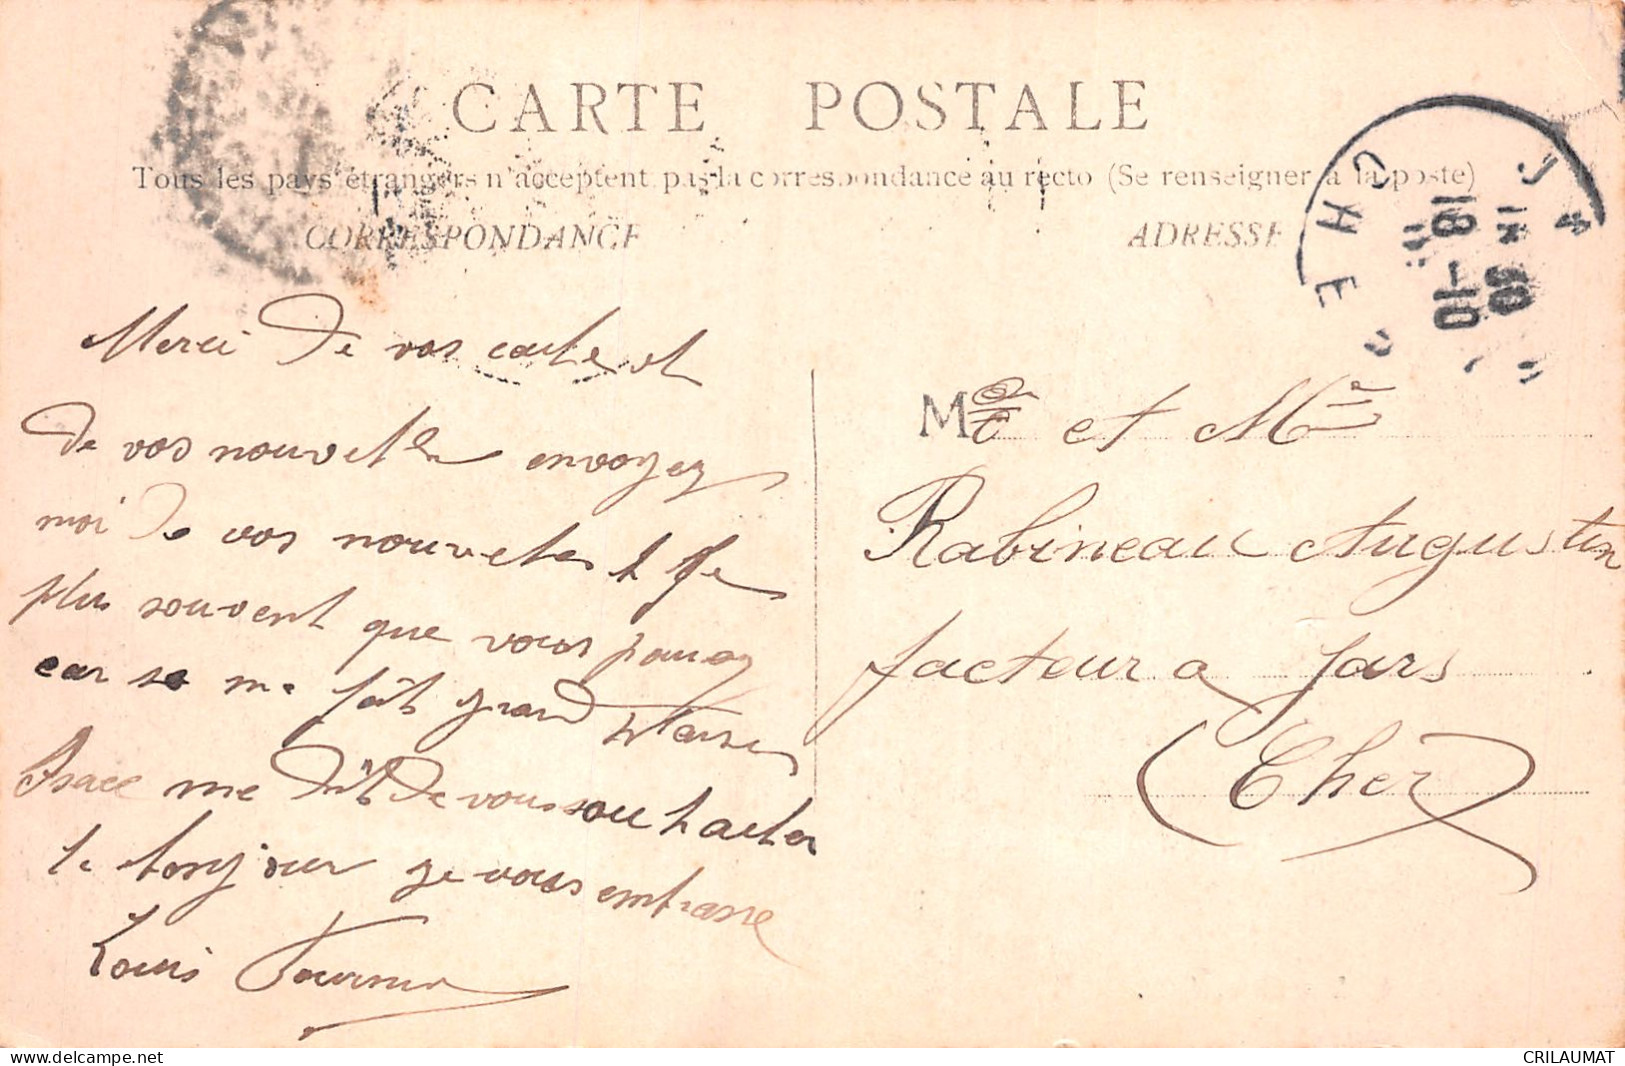 CARTE POSTALE
Tous les pays étrangers n'acceptent pas la correspondance au recto (Se renseigner à la poste)
CORRESPONDANCE
ADRESSE
CHER
18-10
30
Merci de vos carte et
de vos nouvelle envoyez
moi de vos nouvelles
plus souvent que vous pouvez
car se me fait grand plaisir
Isaac me dit de vous souhaiter
le bonjour je vous embrasse
Louis Fournier
M et Mme
Rabineau Augustin
facteur a Jars
(Cher)
delcampe.net
CRILAUMAT